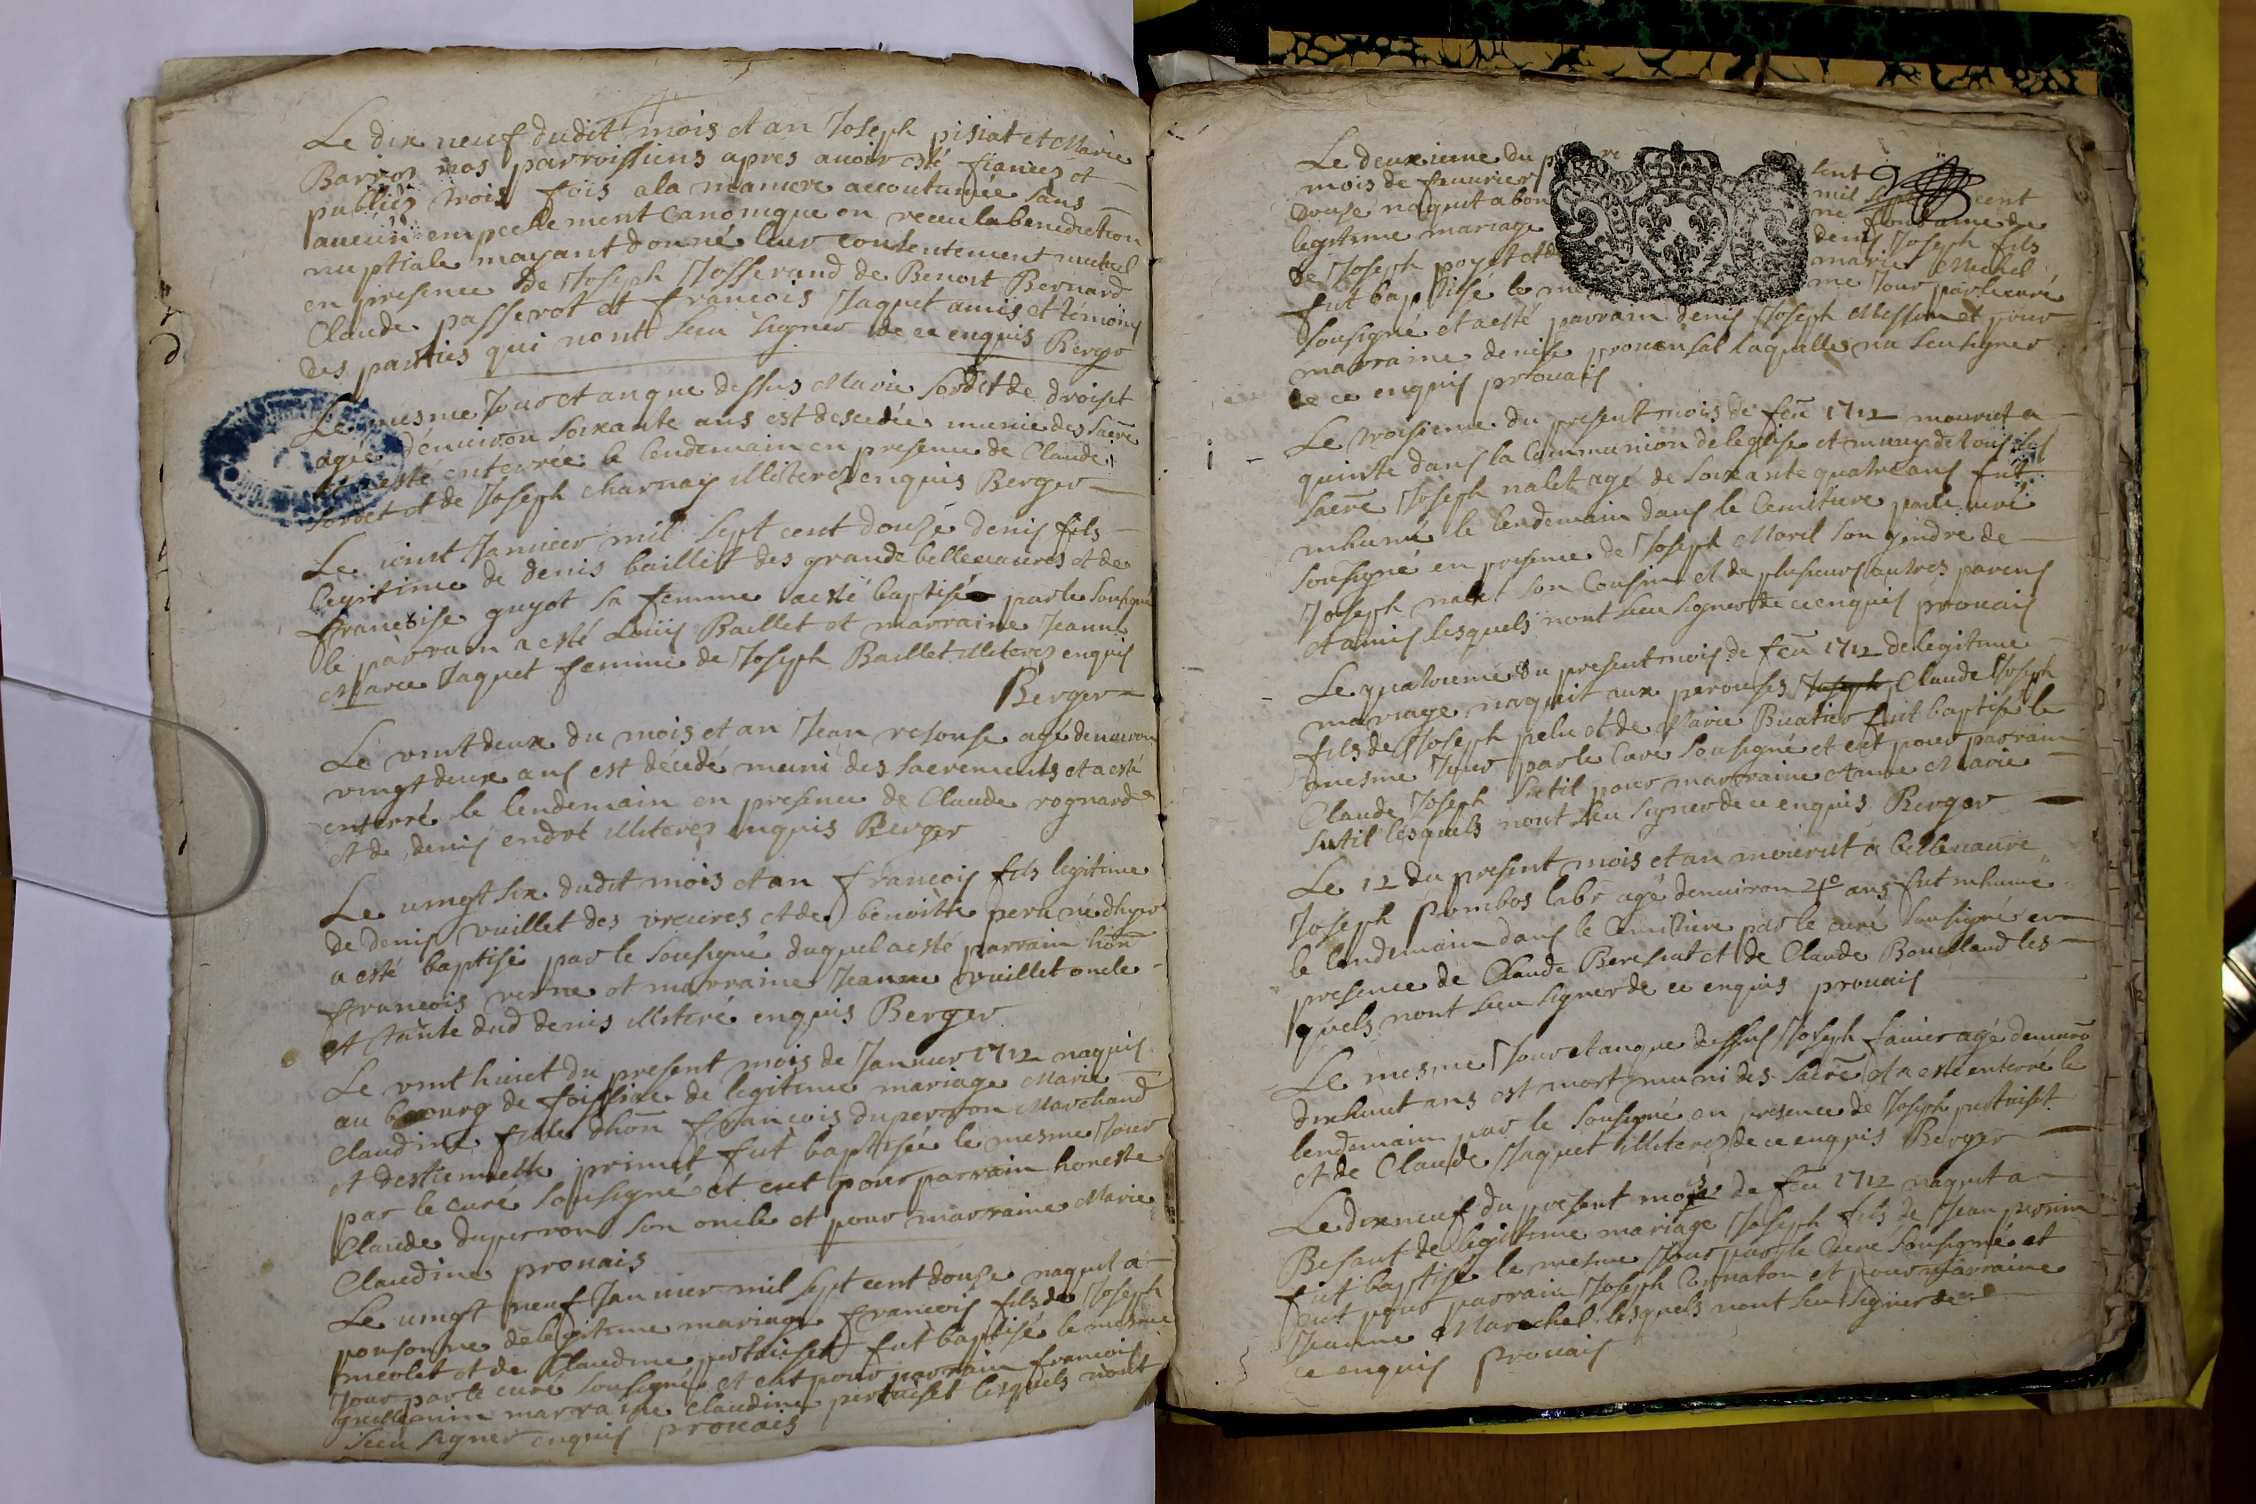 Le dix neuf dudit mois et an Joseph pisiat et Marie
Barioz nos parroissiens apres avoir esté fiancez et
publiez trois fois a la maniere accoutumée sans
aucun empeschement canonique on receu la benediction
nuptiale mayant donné leur consentement mutuel
en presence de Joseph Josserand de Benoit Bernard
Claude passerot et francois Jaquet amis et témoins
des parties qui nont sceu signer de ce enquis Berger
Le mesme Jour et an que dessus Marie Sordet de droiset
agée denuiron soixante ans est decedée munie des sacre
et a esté enterrée le lendemain en presence de Claude
Sordet et de Joseph charnay illiterez enquis Berger
Le vint Januier mil sept cent douze denis fils
legitime de denis baillet des grande belleuaures et de
francoise guyot sa femme a esté baptisé par le sousigné
le parrain a esté Louis Baillet et marraine Jeanne
Marie Jaquet femme de Joseph Baillet illiterez enquis
Berger
Le vint deux du mois et an Jean resouse agé denuiron
vingt deux ans est décédé muni des sacrements et a esté
enterré le lendemain en presence de Claude rognard
et de denis endot illiterez enquis Berger
Le vingt six dudit mois et an francois fils legitime
de denis vuillet des et de benoitte perra né dhyer
a esté baptisé par le sousigné duquel a esté parrain hon
francois verne et marraine Jeanne vuillet oncle
et tante dud denis illiteré enquis Berger
Le vint huict du present mois de Januier 1712 naquis
au bourg de foissiat de legitime mariage Marie
Claudine fille dhon francois duperron Marchand
et destiennette primet fut baptisée le mesme Jour
par le curé sousigné et eut pour parrain honeste
Claude duperron son oncle et pour marraine Marie
Claudine prouais
Le vingt neuf Januier mil sept cent douze naquit a
ponsonne de legitime mariage francois fils de Joseph
nicolet et de Claudine pertuiset fut baptisé le mesme
Jour par le curé sousigné et eut pour parrain francois
guillermin marraine claudine pertuiset lesquels nont
sceu signer enquis prouais
Le deuxieme du present
mois de feurier mil sept cent
douse naquit a bon ne fontaine de
legitime mariage denis Joseph fils
de Joseph poyet et de marie Michel
fut baptisé le mesme Jour par le curé
sousigné et a esté parrain denis Joseph et pour
marraine denise prouensal laqualle na sceu signer
de ce enquis prouais
Le troisieme du present mois de feu 1712 mourut a
quinte dans la Communion de leglise et muny de tous les
sacre Joseph nalet agé de soixante quatre ans fut
inhumé le lendemain dans le Cemitiere par le curé
sousigné en presence de Joseph Morel son gendre de
Joseph nalet son Cousin et de plusieurs autres parens
et amis lesquels nont sceu signer de ce enquis prouais
Le quatrieme du present mois de feu 1712 de legitime
mariage naquit aux perouses Joseph Claude Joseph
fils de Joseph pelu et de Marie Buatier fut baptisé le
mesme Jour par le Curé sousigné et eut pour parrain
Claude Joseph sutil pour marraine Marie
sutil lesquels nont sceu signer de ce enquis Berger
Le 12 du present mois et an mourut a belleuaure
Joseph labr agé denuiron ans fut inhumé
le lendemain dans le Cemitiere par le curé sousigné en
presence de Claude Beresiat et de Claude Bouilloud les
quels nont sceu signer de ce enquis prouais
Le mesme Jour et an que dessus Joseph fauier agé denuiro
dixhuict ans est mort muni des sacre et a esté enterré le
lendemain par le sousigné en presence de Joseph pertuiset
et de Claude Jaquet illiterez de ce enquis Berger
Le dixneuf du present mois de feu 1712 naquit a
Besant de legitime mariage Joseph fils de Jean perrin
fut baptisé le mesme Jour par le Curé sousigné et
eut pour parrain Joseph Cornaton et pour marraine
Jeanne Marechel lesquels nont sceu signer de
ce enquis prouais